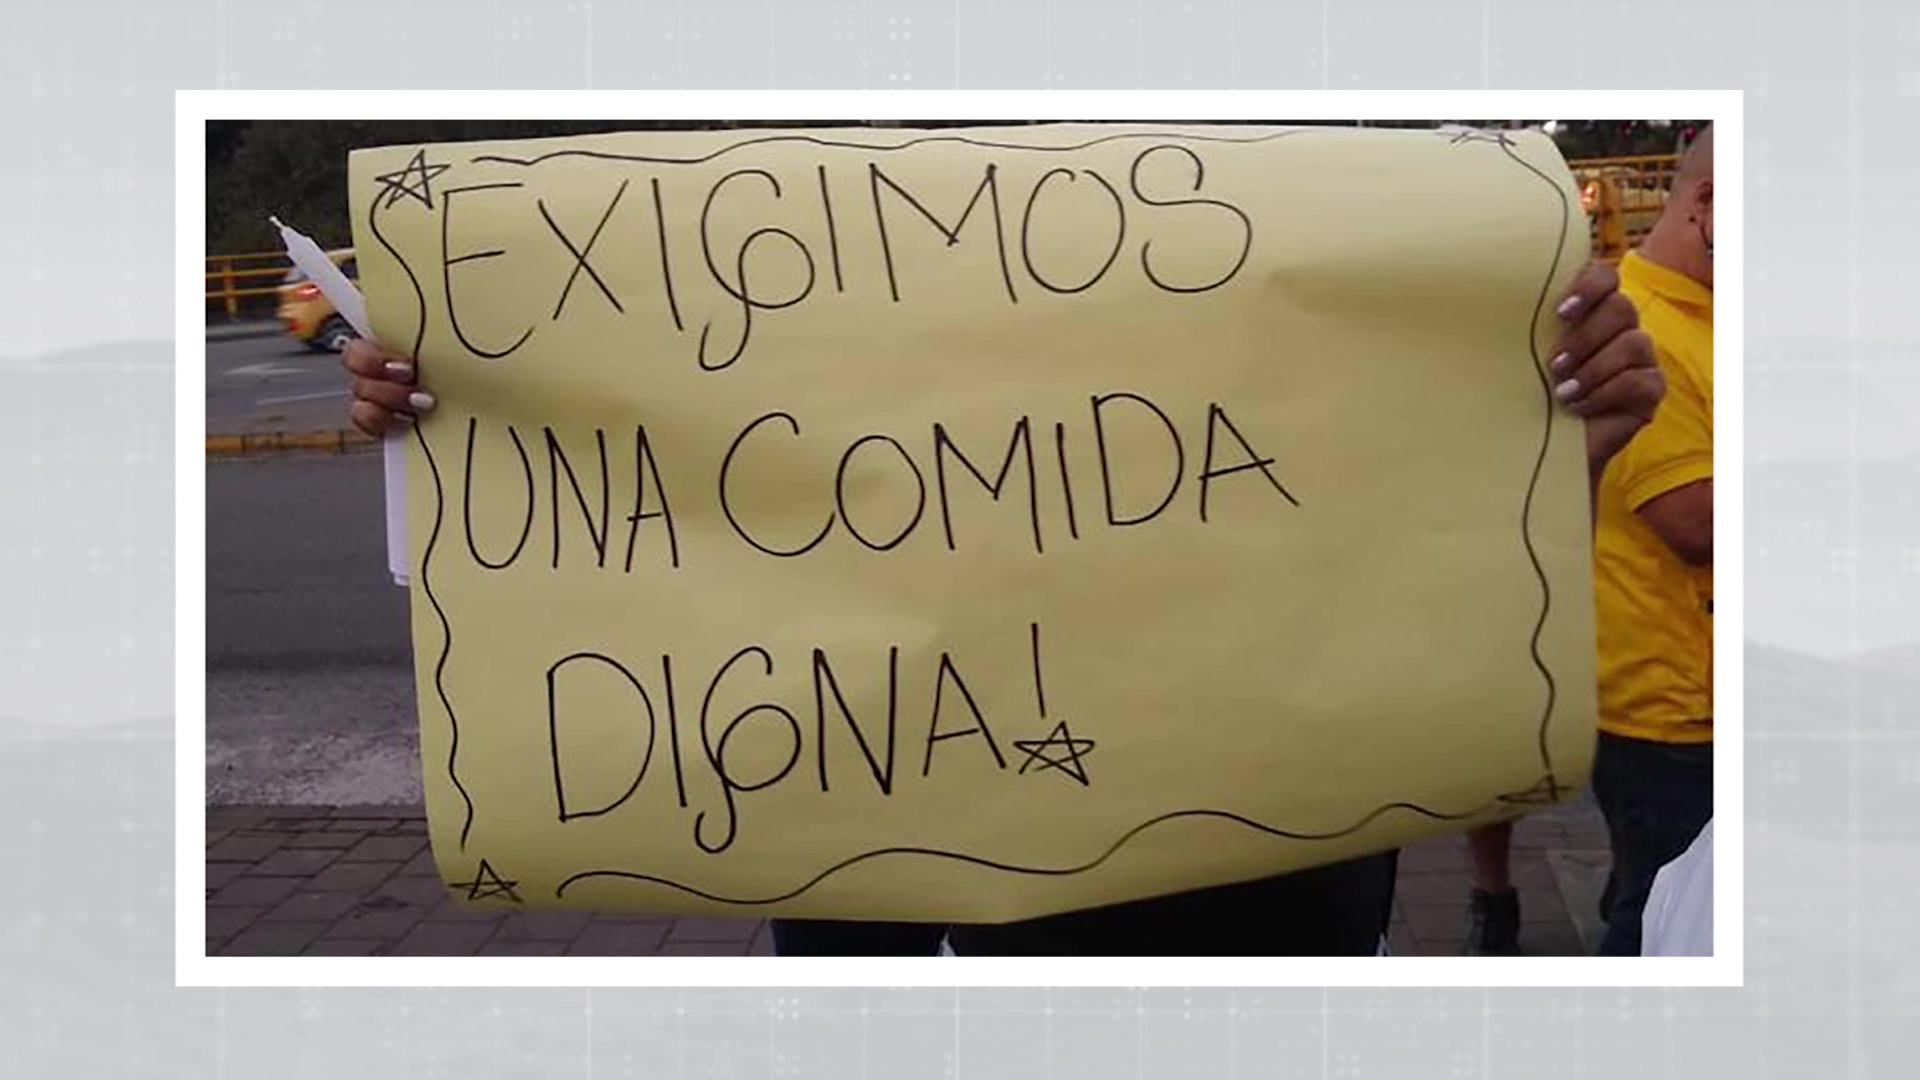 EXIGIMOS
UNA COMIDA
DIGNA!